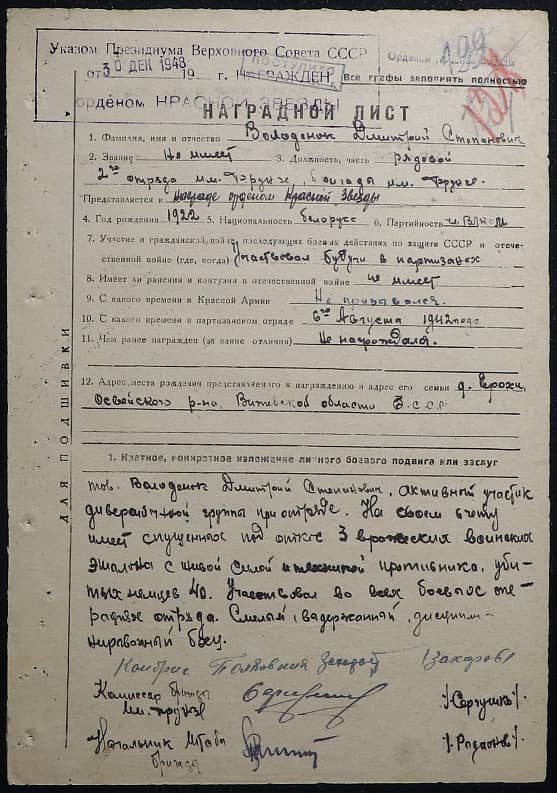 Указом Президиума Верховного Совета СССР
от 30 ДЕК 1948 19 г. НАГРАЖДЕН
орденом КРАСНОЙ ЗВЕЗДЫ
Все графы заполнять полностью
НАГРАДНОЙ ЛИСТ
1. Фамилия, имя и отчество Володенок Дмитрий Степанович
2. Звание Не имеет 3. Должность, часть рядовой
2го отряда им. Фрунзе, бригады им. Фрунзе.
Представляется к награде орденом Красной Звезды
4. Год рождения 1922 5. Национальность белорусс 6. Партийность чл. ВЛКСМ
7. Участие в гражданской войне, последующих боевых действиях по защите СССР и отече-
ственной войне (где, когда) Участвовал будучи в партизанах
8. Имеет ли ранения и контузии в отечественной войне не имеет
9. С какого времени в Красной Армии Не призывался.
10. С какого времени в партизанском отряде 6го Августа 1942 года
11. Чем ранее награжден (за какие отличия) Не награждался.
12. Адрес места рождения представляемого к награждению и адрес его семьи д.
Освейского р-на, Витебской области Б.С.С.Р.
ДЛЯ ПОДШИВКИ
1. Краткое, конкретное изложение личного боевого подвига или заслуг
тов. Володенок Дмитрий Степанович, активный участник
диверсионной группы при отряде. На своем счету
имеет спущенных под откос 3 вражеских воинских
эшалона с живой силой и техникой противника, уби-
тых немцев 40. Участвовал во всех боевых опе-
рациях отряда. Смелый, выдержанный, дисципли-
нированный боец.
Комбриг Захаров
Комиссар бригады
им. Фрунзе
Начальник штаба
бригады